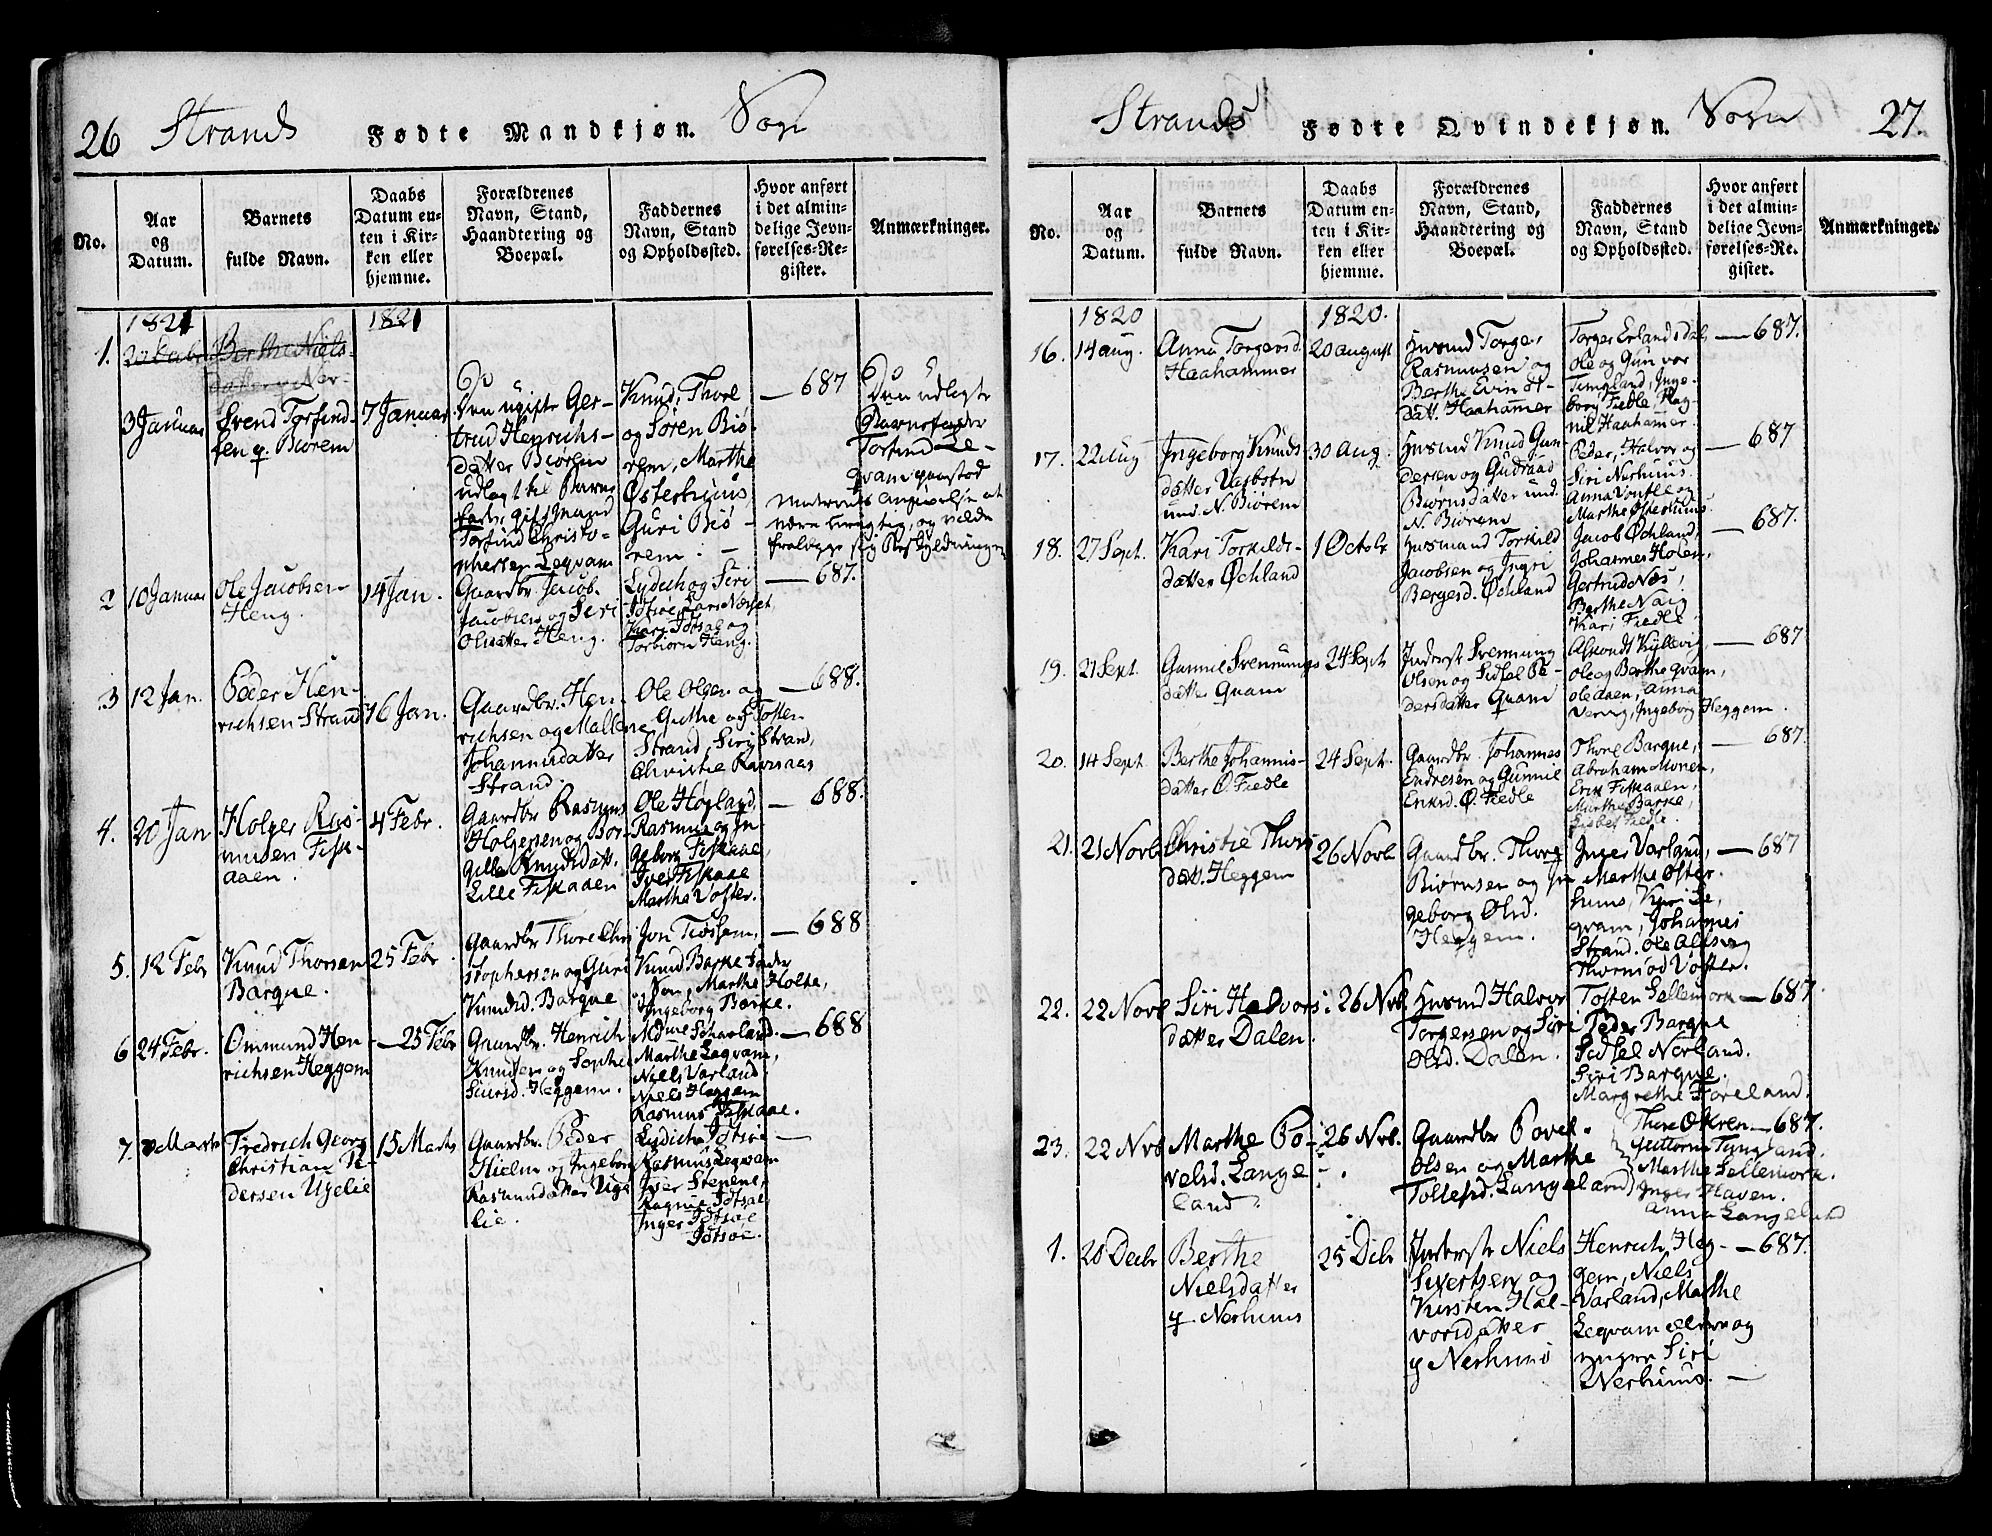 26 Strands Fødte Mandkjøn. Sogn
No.
Aar
og
Datum.
Barnets
fulde Navn.
Daabs
Datum en-
ten i Kir-
ken eller
hjemme.
Forældrenes
Navn, Stand,
Haandtering og
Boepæl.
Faddernes
Navn, Stand
og Opholdssted.
Hvor anført
i det almin-
delige Jevn-
førelses-Re-
gister.
Anmærkninger.
1821
1821
1.
Berthe Niels-
datter
3 Januar
Svend Torfind-
sen
Biørem
7 Januar
Den ugifte Ger-
trud Henrichs-
datter Biørem
udlagt til Barne
fader, gift Mand
Torfind Christo-
phersen Leqvam
Knud, Thore
og Søren Biø-
rem, Marthe
Østerhuus,
Guri Biø-
rem. —
— 687
Den udlagte
Barnefader
Torfind Le-
qvam paastod
Moderens Angivelse at
være urigtig, og vilde
fralægge sig Beskyldningen
2
10 Januar
Ole Jacobsen
Heng.
14 Jan.
Gaardbr. Jacob
Jacobsen og Siri
Olsdatter Heng.
Lydich og Siri
Jøtsøe, Lars Norset,
Kari Jøtsøe og
Torbiørn Heng.
— 687.
3
12 Jan.
Peder Hen-
richsen Strand
16 Jan.
Gaardbr. Hen-
richsen og Mallene
Johannesdatter
Strand.
Ole Olsen og
Guthe og Tosten
Strand, Siri Strand,
Christie Ravnaas
— 688.
4.
20 Jan
Holger Ras-
musen Fisk-
aaen.
4 Febr.
Gaardbr Rasmus
Holgersen og Bor-
gille Knudsdatt.
Lille Fiskaaen
Ole Høgland,
Rasmus og In-
geborg Fiskaae,
Iver Fiskaae
Martha Voster.
— 688.
5.
12 Febr
Knud Thorsen
Barque.
25 Febr.
Gaardbr Thore Chri
stophersen og Guri
Knudsd. Barque
Jon Tiøssem,
Knud Barke
Marthe Holte,
Ingeborg Barke.
— 688
6
24 Febr.
Ommund Hen-
richsen Heggem
— 25 Febr
Gaardbr. Henrich
Knudsen og Sophie
Siursd. Heggem.
Marthe Leqvam,
Niels Varland
Niels Heggem
Rasmus Fiskaae.
— 688
7.
Marts
Fredrich Georg
Christian Pe-
dersen Ugelie
15 Marts
Gaardbr. Peder
Hielm og Ingeborg
Rasmusdatter Uge
lie.
Lydich Jøtsøe
Rasmus Leqvam
Iver Stenene,
Ragnie Jøtsøe
Inger Jøtsøe
Jøtsøe.
—
Strands Fødte Qvindekjøn. Sogn 27.
No.
Aar
og
Datum.
Barnets
fulde Navn.
Daabs
Datum en-
ten i Kir-
ken eller
hjemme.
Forældrenes
Navn, Stand,
Haandtering og
Boepæl.
Faddernes
Navn, Stand
og Opholdssted.
Hvor anført
i det almin-
delige Jevn-
førelses-Re-
gister.
Anmærkninger.
1820
1820.
16.
14 aug.
Anna Torgersd.
Haahammer
20 august
Husmd Torger
Rasmusen og
Berthe Evinds-
datt. Haahammer
Torger Erlandsdal,
Ole og Gun vor
Tempeland, Inge-
borg Fiedle, Mag-
nil Haahammer.
— 687.
17.
22 Aug
Ingeborg Knuds
datter
und. N. Biørem
30 Aug.
Husmd Knud Gun
dersen og Gudraad
Biørnsdatter und.
N. Biørem
Peder, Halvor og
Siri Nerhuus.
Anna Vontle og
Marthe Østerhuus.
— 687
18.
27 Sept.
Kari Torkilds-
datter Øchland
1 Octobr
Husmand Torkild
Jacobsen og Ingri
Bergesd. Øchland
Jacob Øchland,
Johannes Holen,
Gertrud Næs,
Berthe Nag
Kari Fiedle
— 687.
19.
21 Sept.
Gunnil Svennungs
datter Qvam
24 Sept
Inderst Svennung
Olsen og Sidsel Pe-
dersdatter Qvam
Ole og Berthe Qvam,
Ole Aaen, Anna
Vervig, Ingeborg Heggem.
— 687
20.
14 Sept.
Berthe Johannis-
datter Ø. Fiedle
24 Sept.
Gaardbr. Johannes
Endresen og Gunnil
Eriksd. Ø. Fiedle
Thore Barque,
Abraham Monen,
Erik Fiskaaen,
Marthe Barke,
Lisbet Fiedle.
— 687
21.
21 Novb.
Christie Thors
datt. Heggem
26 Novb.
Gaardbr. Thore
Biørnsen og In
geborg Olsd.
Heggem.
Inger Varland,
Marthe Øster-
huus, Kari Le,
qvam, Johannes
Strand. Ole
Thormod Voster.
— 687
22.
22 Novb
Siri Halvors:
datter Dalen.
26 Nvb.
Husmd Halvor
Torgersen og Siri
Olsd. Dalen.
Tosten Sellemork
Peder Barque
Sidsel Norland.
Siri Barque.
Margrethe Føreland.
— 687
23.
22 Nvb
Marthe Po-
velsd. Lange
land.
26 Nvb.
Gaardbr Povel
Olsen og Marthe
Tollefsd. Langeland
Thore Økren
Guttorm Tyngland.
Marthe Sellemork.
Inger Haven.
Anna Langeland
— 687.
1.
20 Decbr
Berthe
Nielsdatter
Nerhuus
25 Dcbr
Inderst Niels
Sivertsen og
Kirsten Hal-
vorsdatter
Nerhuus
Henrich Heg-
gem, Niels
Varland, Marthe
Leqvam ældre og
yngre Siri
Nerhuus. —
— 687.